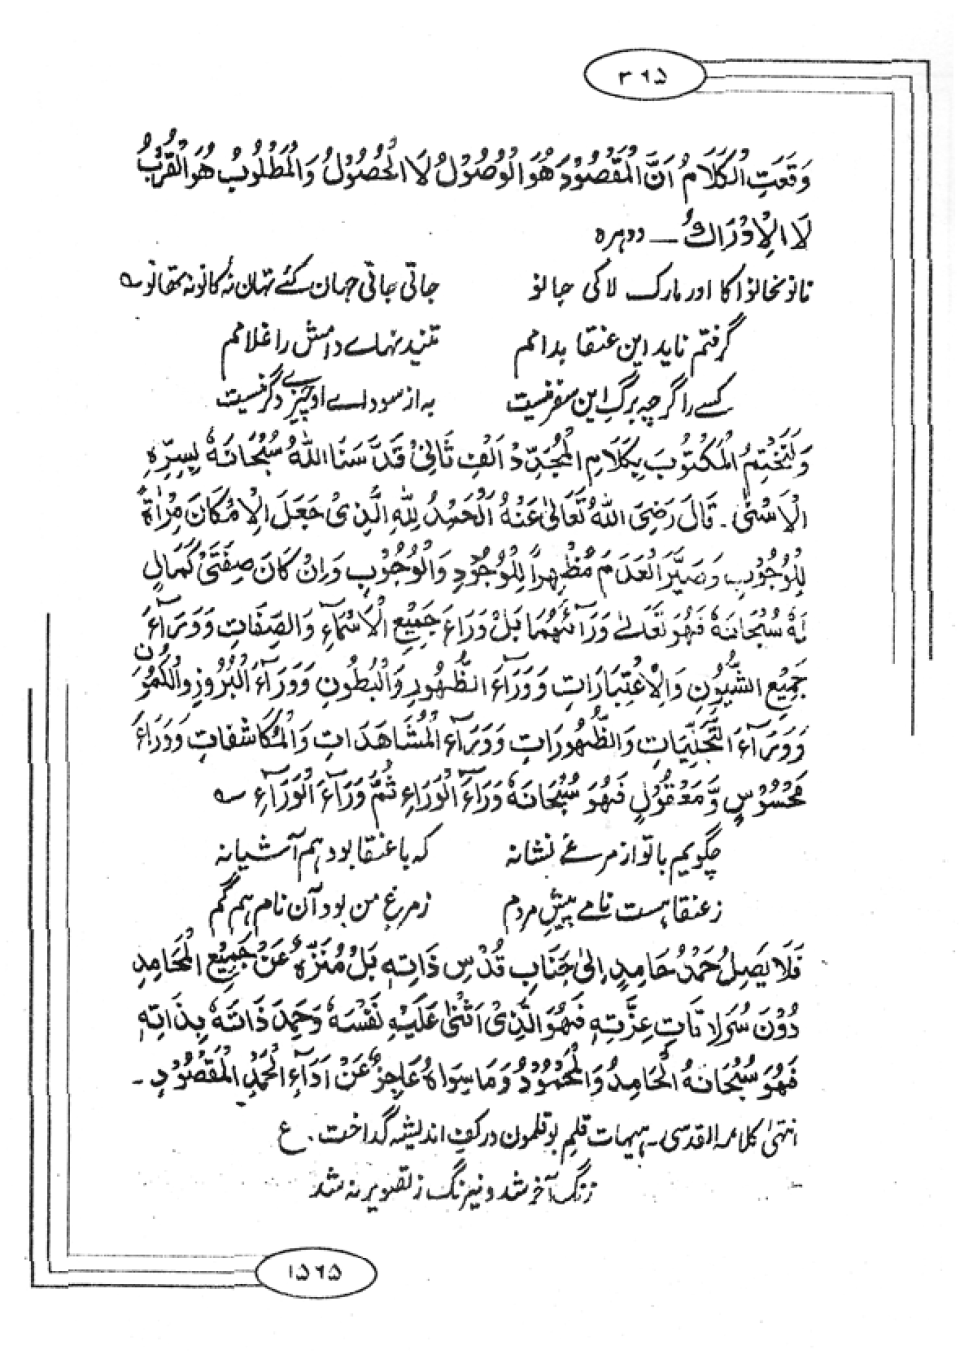 ۳۶۵
وَقَعَتِ الْكَلَامُ اَنَّ الْمَقْصُوْدَ هُوَ الْوُصُوْلُ لَا الْحُصُوْلُ وَالْمَطْلُوْبُ هُوَ الْقُرْبُ
لَا الْاِدْرَاكُ ــ دوہرہ
نانو نحالؤا کا اور مارک لاکی جالؤ جاتی جاتی جہان گئے تہان نہ کانو نہ تھانو ؎
گرفتم ناید این عنقا بدامم تنیدنہاے دامش را غلامم
کسے را گرچہ برگِ این سفر نیست بہ از سوداے او چیزے دگر نیست
وَلْنَخْتِمُ الْمَكْتُوْبَ بِكَلَامِ الْمُجَدِّدِ اَلْفِ ثَانِيْ قَدَّسَنَا اللهُ سُبْحَانَهٗ بِسِرِّهِ
الْاَسْنٰى ۔ قَالَ رَضِىَ اللهُ تَعَالٰى عَنْهُ اَلْحَمْدُ لِلّٰهِ الَّذِىْ جَعَلَ الْاِمْكَانَ مِرْاٰةً
لِلْوُجُوْبِ وَصَيَّرَ الْعَدَمَ مَظْهِرًا لِلْوُجُوْدِ وَالْوُجُوْبِ وَاِنْ كَانَ صِفَتَىْ كَمَالٍ
لَهٗ سُبْحَانَهٗ فَهُوَ تَعَالٰى وَرَآئَهُمَا بَلْ وَرَاءَ جَمِيْعِ الْاَسْمَآءِ وَالصِّفَاتِ وَوَرَآءَ
جَمِيْعِ الشُّيُوْنِ وَالْاِعْتِبَارَاتِ وَوَرَآءَ الظُّهُوْرِ وَالْبُطُوْنِ وَوَرَآءَ الْبُرُوْزِ وَالْكُمُوْنِ
وَوَرَآءَ التَّجَلِّيَاتِ وَالظُّهُوْرَاتِ وَوَرَآءَ الْمُشَاهَدَاتِ وَالْمُكَاشَفَاتِ وَوَرَآءَ
مَحْسُوْسٍ وَّ مَعْقُوْلٍ فَهُوَ سُبْحَانَهٗ وَرَآءَ الْوَرَاءِ ثُمَّ وَرَآءَ الْوَرَآءِ ؎
چگویم با تو از مرغے نشانہ کہ با عنقا بود ہم آشیانہ
ز عنقا ہست نامے پیشِ مردم ز مرغِ من بود آن نام ہم گم
فَلَا يَصِلُ حَمْدُ حَامِدٍ اِلٰى جَنَابِ قُدْسِ ذَاتِهٖ بَلْ مُنَزَّهٌ عَنْ جَمِيْعِ الْمَحَامِدِ
دُوْنَ سُرَادِقَاتِ عِزَّتِهٖ فَهُوَ الَّذِىْ اَثْنٰى عَلَيْهِ نَفْسَهٗ وَحَمِدَ ذَاتَهٗ بِذَاتِهٖ
فَهُوَ سُبْحَانَهُ الْحَامِدُ وَالْمَحْمُوْدُ وَمَا سِوَاهُ عَاجِزٌ عَنْ اَدَآءِ الْحَمْدِ الْمَقْصُوْدِ ۔
انتہٰی کلامہ القدسی ۔ ہیہات قلمِ بوقلمون در کفِ اندیشہ گداخت . ع
رنگ آخر شد و نیرنگِ ز تصویر نہ شد
۱۵۶۵